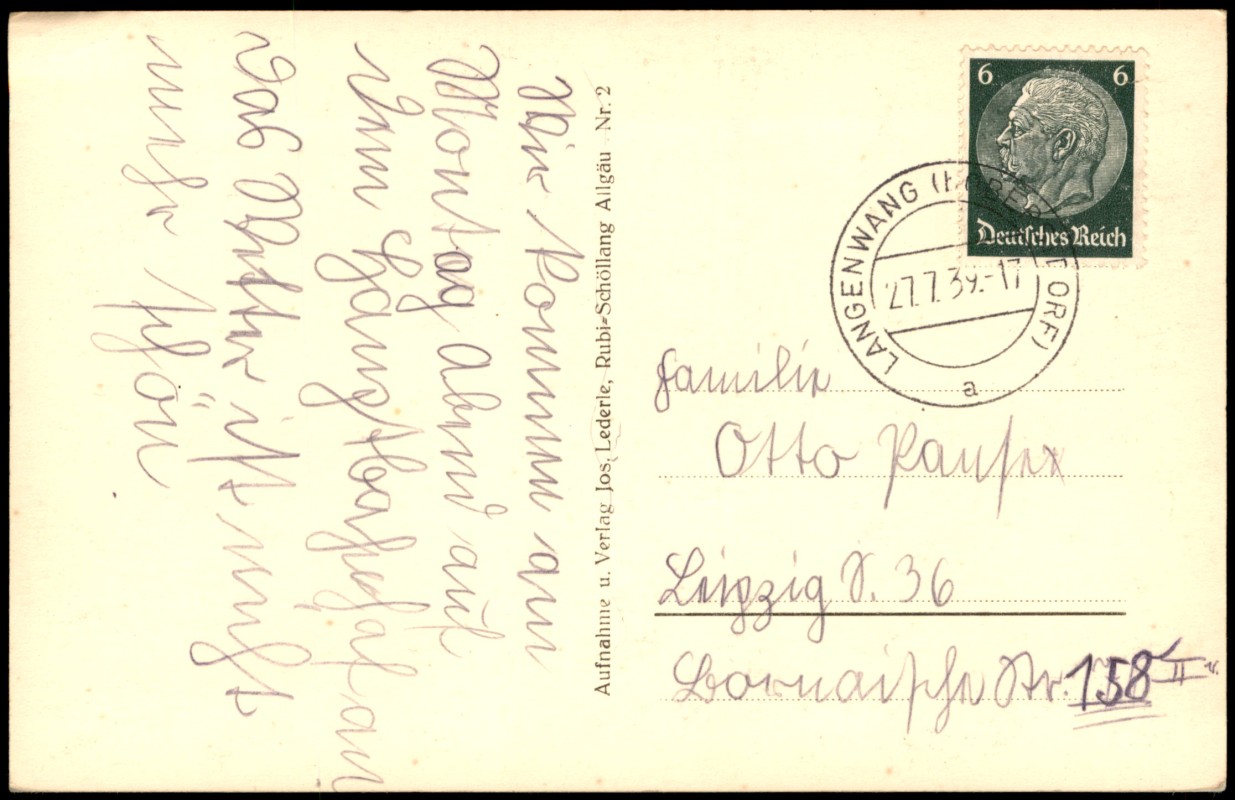 Wir kommen am
Montag Abend auf
dem Hauptbahnhof an
Das Wetter ist nicht
mehr schön
Aufnahme u. Verlag Jos. Lederle, Rubi-Schöllang Allgäu Nr. 2
6 6
Deutsches Reich
LANGENWANG OBERSTDORF)
27.7.39.-17
a
Familie
Otto
Leipzig S. 36
Bornaische Str. 158 II